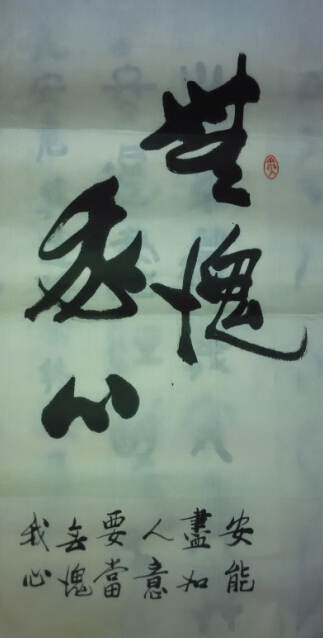 無愧
我心
安能
盡如
人意
要當
無愧
我心